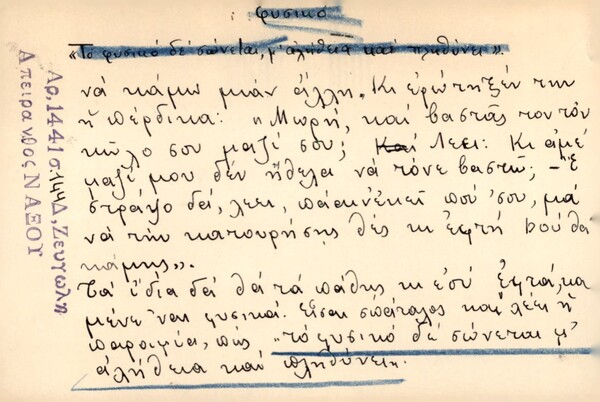 φυσικό
«Το φυσικό δέ σώνεται, μ' αλήθεια καί πληθύνει».
νά κάμω μιάν άλλη. Κι ερώτηξέν την
ή πέρδικα: Μωρή, καί βαστάς τον τόν
κώλο σου μαζί σου; Λέει: Κι αμέ
μαζί μου δέν ήθελα νά τόνε βαστώ; –Έ
λέει, πού 'σου, μά
νά τήν κατουρήσης θές κι εφτή πού θά
κάμης».
Τά ίδια δά θά τά πάθης κι εσύ
μένε ναι φυσικά. Είσαι σπάταλος καί λέει ή
παροιμία, πώς "τό φυσικό δέ σώνεται μ'
αλήθεια καί πληθύνει".
Αρ. 1441 σ. 144 Δ. Ζευγώλη
Απείρανθος ΝΑΞΟΥ